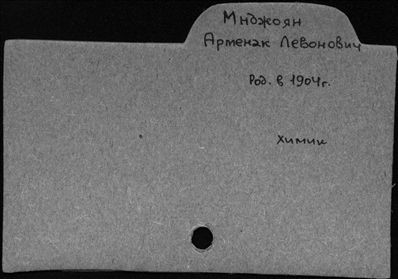 Мнджоян
Арменак Левонович
Род. в 1904г.
химик